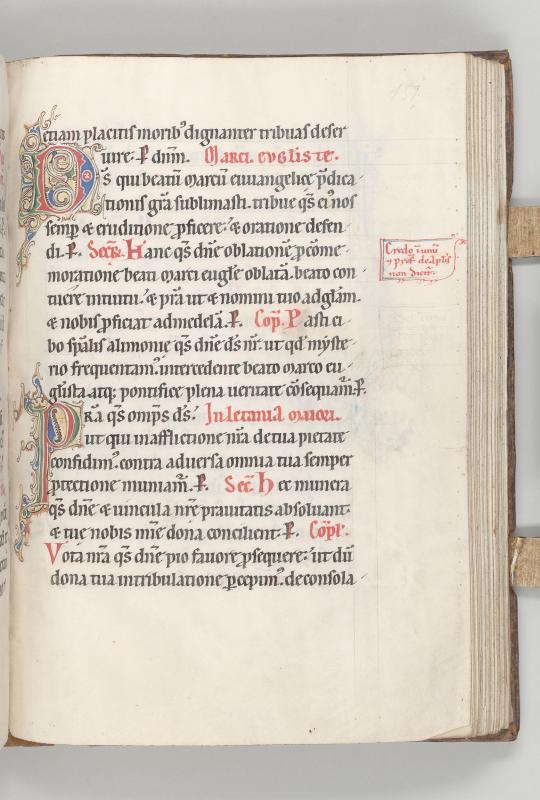 etiam placitis morib' dignanter tribuas deser
uire. P dūm. Marci. evg̅listę.
D s̄ qui beatū marcū euuangelicę p̄dica
tionis grā sublimasti. tribue qs̄ ei' nos
semp̲ & eruditione p̲ficere. & oratione defen
di. P. Secr̄. Hanc qs̄ dn̄e oblationē p̲ cōme
moratione beati marci eugl̄e oblatā. beato con
tuere intuitu. & prā ut & nomini tuo ad gl̄am.
& nobis p̲ficiat ad medelā. P. Cop̄. Pasti ci
bo sp̄alis alimonię qs̄ dn̄e ds̄ nr̄. ut qd' myste
rio frequentam'. intercedente beato marco eu
gl̄ista atq; pontifice plena ueritate cōsequam̄. P.
P rā qs̄ omp̄s ds̄. In letania maiori.
ut qui in afflictione nr̄a de tua pietate
confidim'. contra aduersa omnia tua semper
p̲tectione muniam̄. P. Secr̄. Hęc munera
qs̄ dn̄e & uincula nrē prauitatis absoluant.
& tuę nobis mīę dona concilient. P. Cōpl̄.
Vota nr̄a qs̄ dn̄e pio fauore p̲sequere. ut dū
dona tua in tribulatione p̲cepim'. de consola
Credo ī unū
& pref. de ap̄lis
non dicit̄.
157